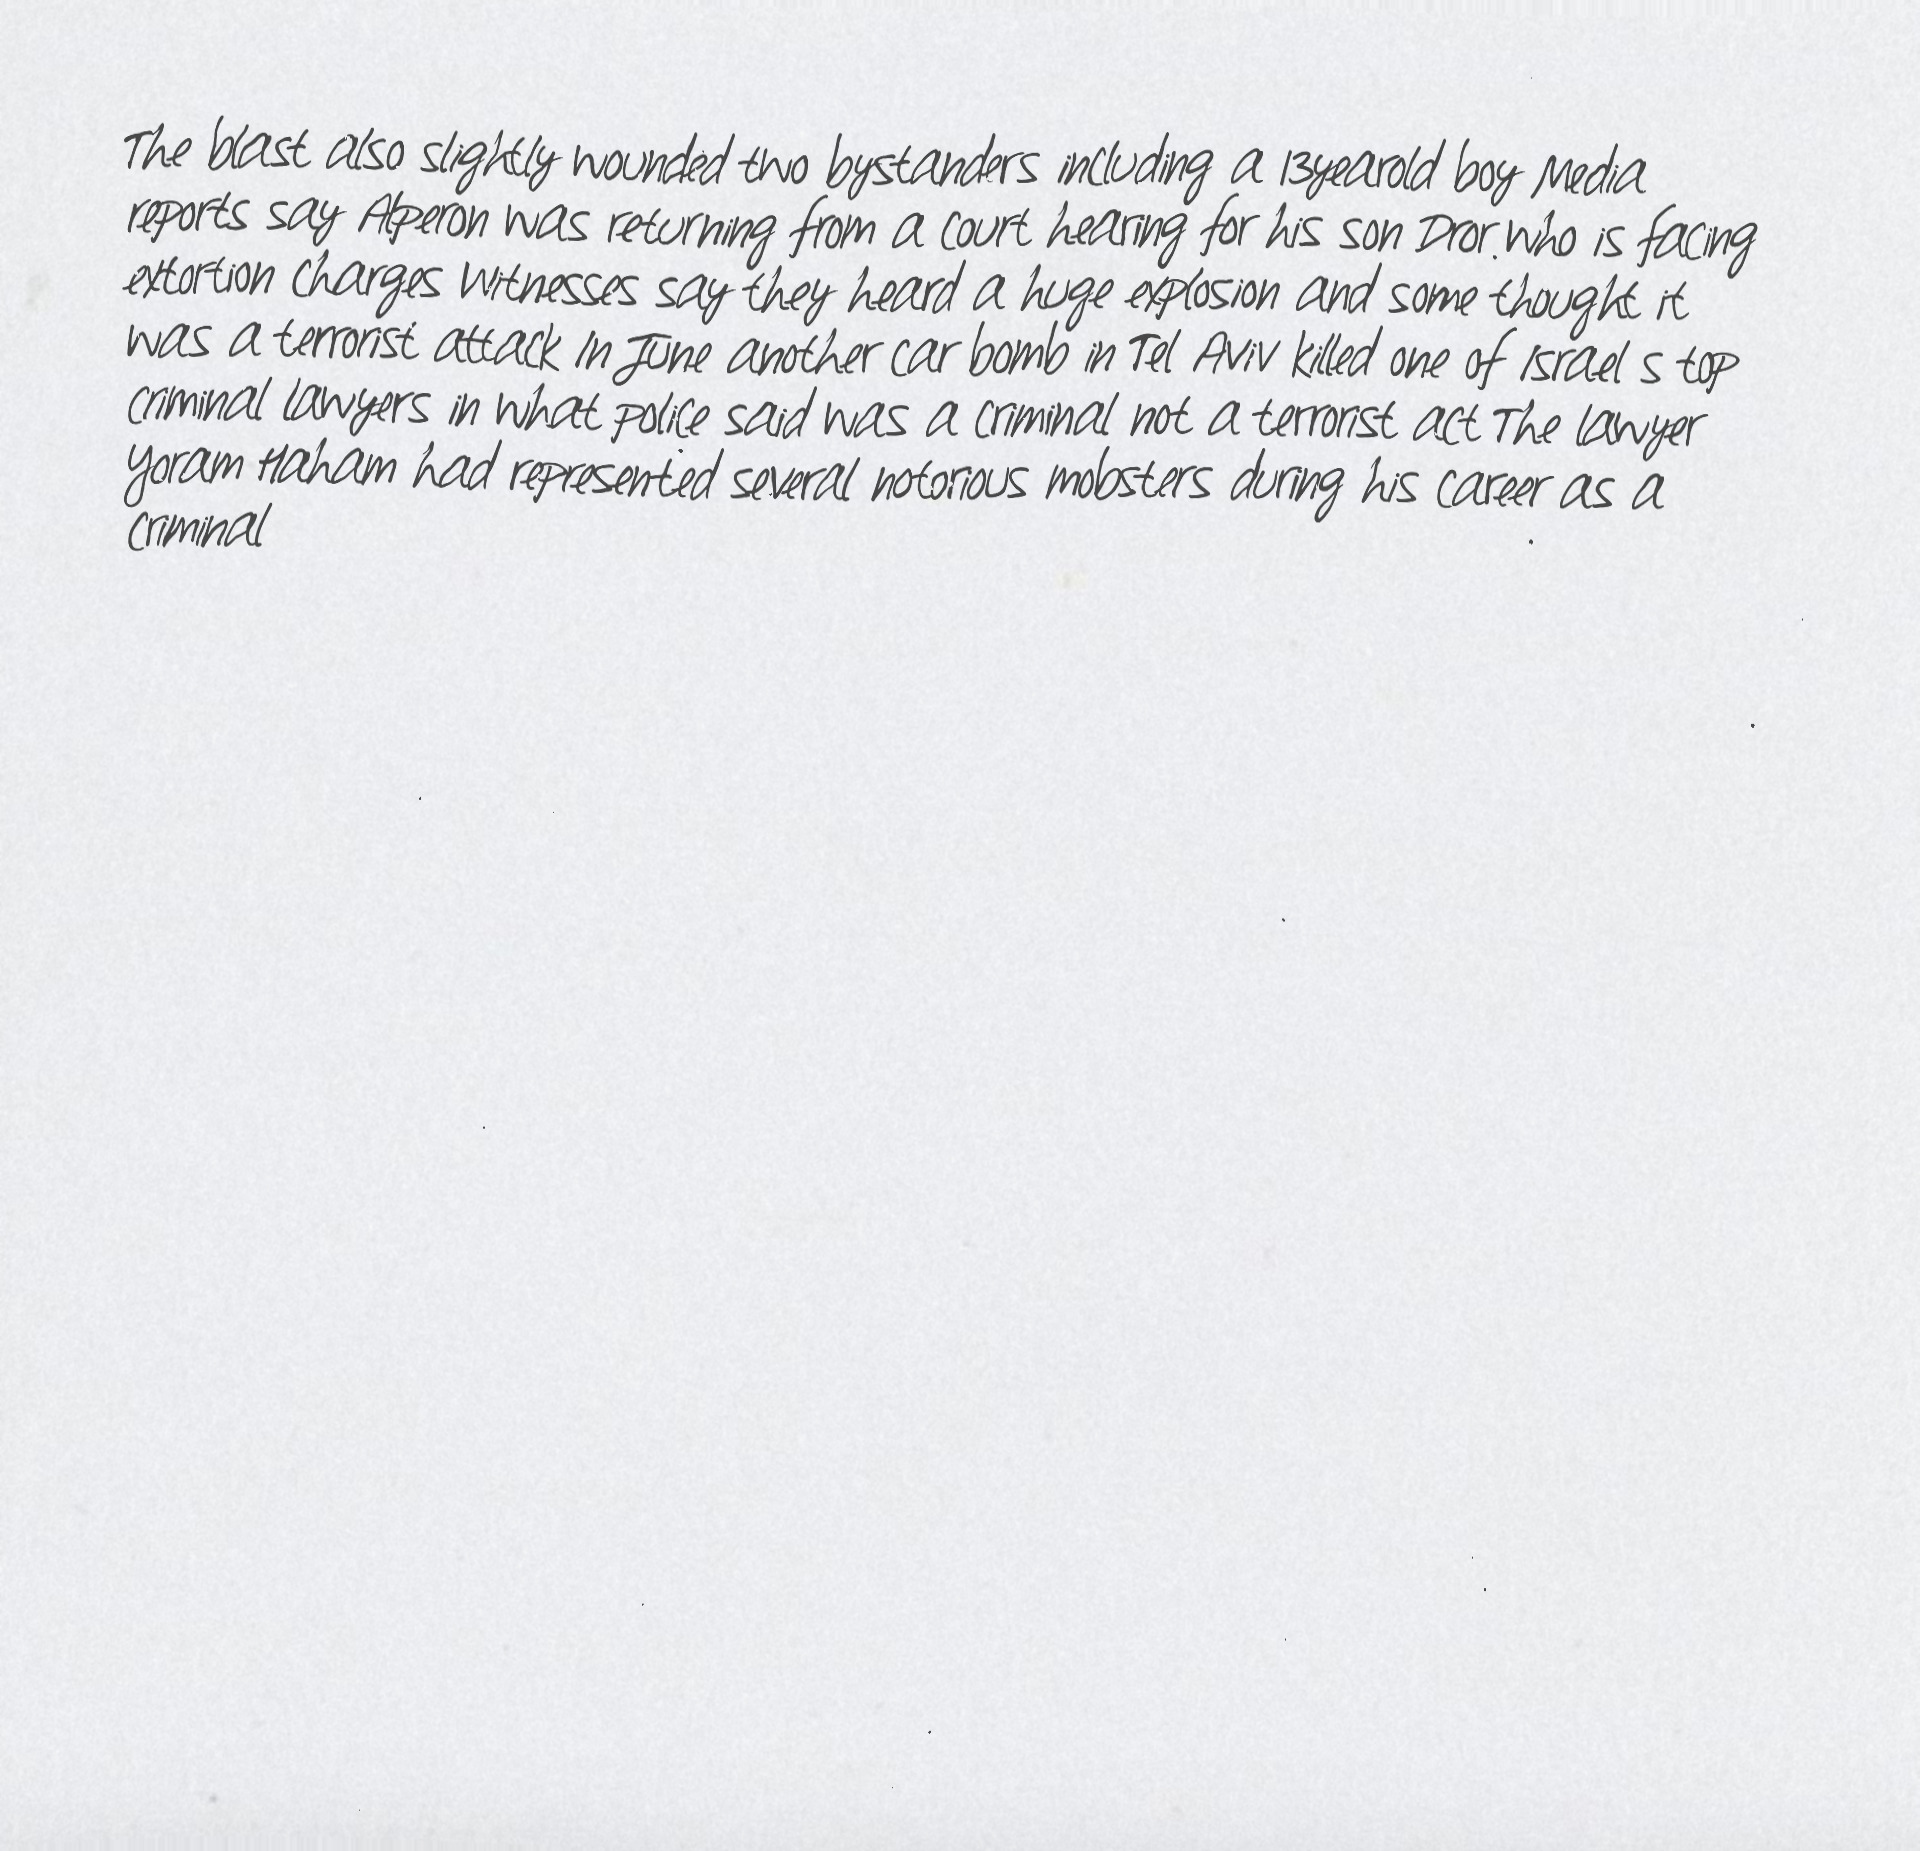 The blast also slightly wounded two bystanders including a 13yearold boy Media
reports say Alperon was returning from a court hearing for his son Dror who is facing
extortion charges Witnesses say they heard a huge explosion and some thought it
was a terrorist attack In June another car bomb in Tel Aviv killed one of Israel s top
criminal lawyers in what police said was a criminal not a terrorist act The lawyer
Yoram Haham had represented several notorious mobsters during his career as a
criminal